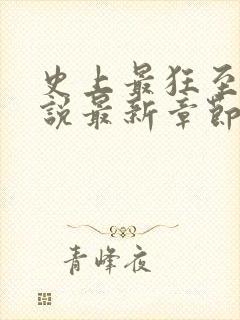 史上最狂至
說最新章節
青峰夜